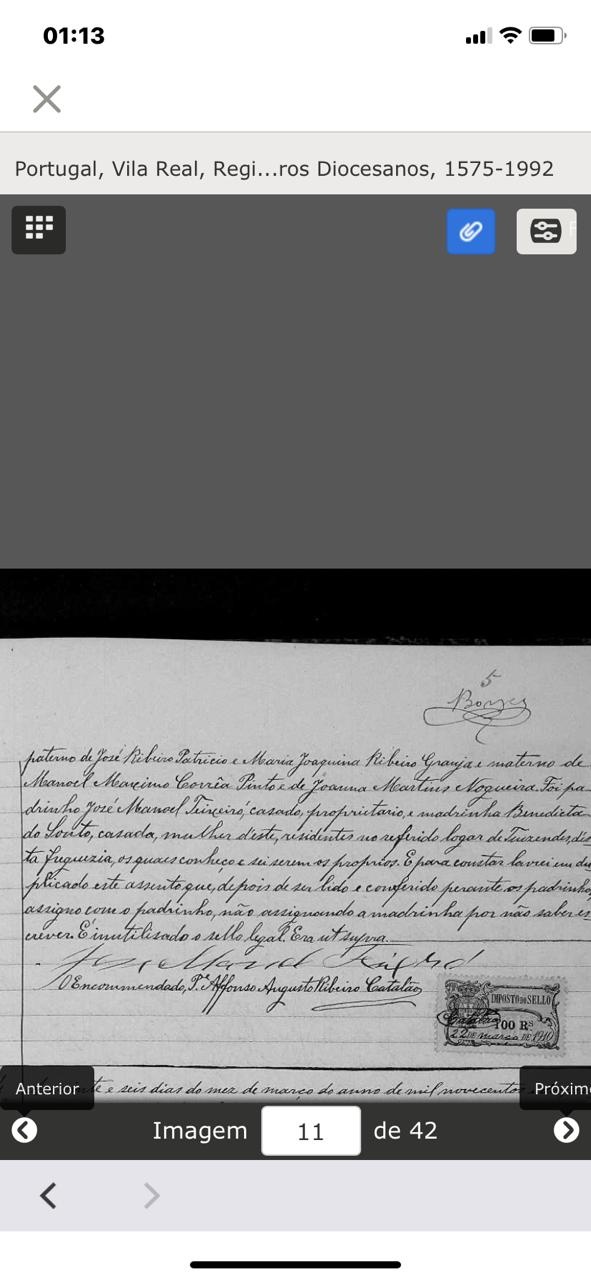 01:13
Portugal, Vila Real, Regi...ros Diocesanos, 1575-1992
5
Borges
paterno de José Ribeiro Patricio e Maria Joaquina Ribeiro Granja e materno de
Manoel Marcimo Corrêa Pinto e de Joanna Martins Nogueira. Foi pa-
drinho José Manoel Teixeiró, casado, proprietario, e madrinha Benedicta
do Souto, casada, mulher d'este, residentes no referido logar de Tuizendes, d'es
ta freguezia, os quaes conheço e sei serem os proprios. E para constar lavrei em du
plicado este assento que, depois de ser lido e conferido perante os padrinhos,
assigno com o padrinho, não assignando a madrinha por não saber es
crever. E' inutilisado o sello legal. Era ut supra.
José Manoel
O Encommendado, P.e Affonso Augusto Ribeiro Catalão
IMPOSTO DO SELLO
Catalão
100 RS
22 DE março DE 1910
e seis dias do mez de março do anno de mil novecentos
Anterior
Próxim
Imagem 11 de 42